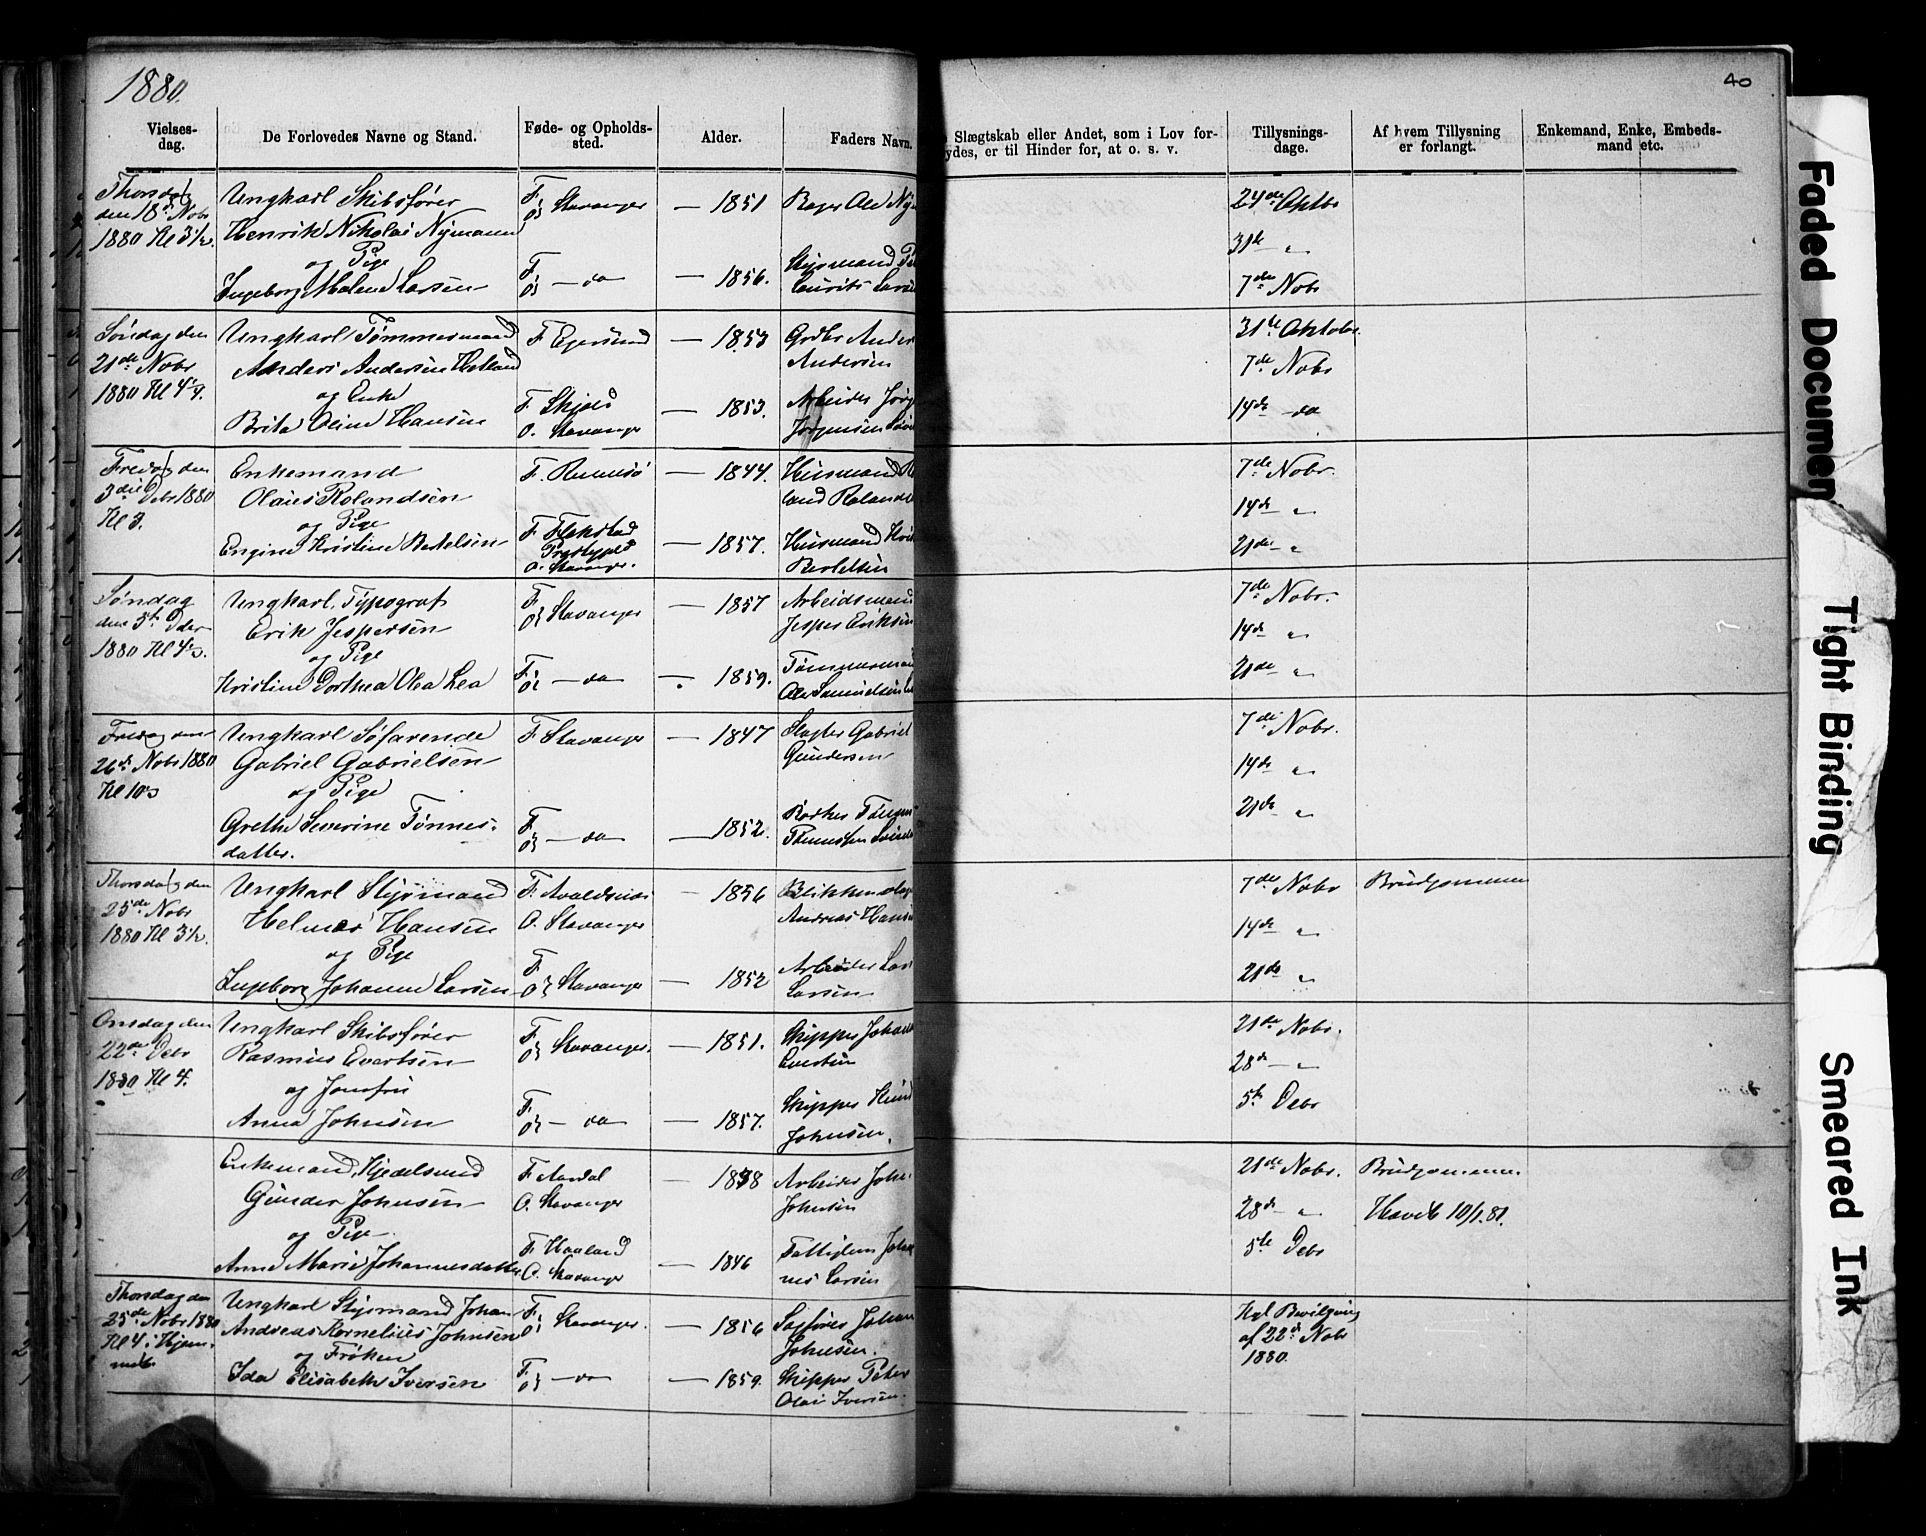 1880.
40
Vielses-
dag.
De Forlovedes Navne og Stand.
Føde- og Opholds-
sted.
Alder.
Faders Navn.
Slægtskab eller Andet, som i Lov for-
ydes, er til Hinder for, at o. s. v.
Tillysnings-
dage.
Af hvem Tillysning
er forlangt.
Enkemand, Enke, Embeds-
mand etc.
Thorsdag
den 18de Nobr
1880 Kl 3½.
Ungkarl Skibsfører
Henrik Nikolai Nymann
og Pige
Ingeborg Malene Larsen
F. O. Stavanger
F. O. — do
— 1851
— 1856.
Bager Ole Nym
Styrmand
Laurits Larse
24de Oktbr
31te "
7de Nobr
Søndag den
21de Nobr
1880 Kl 4¼.
Ungkarl Tømmermand
Anders Andersen Hetland
og Enke
Brita Oline Hansen
F Egersund
F. Skjold
O. Stavanger
— 1853
— 1853.
Gdbr Anders
Andersen
Arbeider Jørg
Jørgensen
31te Oktobr.
7de Nobr
14de — do
Fredag den
3die Debr 1880
Kl 3.
Enkemand
Olaus Rolandsen
og Pige
Engine Kristine Bertelsen
F. Rennesø
F. Flekstad
Prgjeld
O. Stavanger.
— 1844.
— 1857.
Husmand Ro
land Rolands
Husmand
Bertelsen
7de Nobr.
14de "
21de "
Søndag
den 5te Dcbr
1880 Kl 4½.
Ungkarl, Typograf
Erik Jespersen
og Pige
Kristine Dorthea Olea Lea
F. O. Stavanger
F. O. — do
— 1857
— 1859.
Arbeidsmand
Jesper Eriksen
Tømmermand
Ole Samuelsen
7de Nobr.
14de "
21de "
Fredag den
26de Nobr 1880
Kl 10½
Ungkarl Søfarende
Gabriel Gabrielsen
og Pige
Grethe Severine Tønnes-
datter.
F Stavanger
F. O. — do
— 1847
— 1852.
Slagter Gabriel
Gundersen
Bødker Tønnes
Tønnessen
7de Nobr.
14de "
21de "
Thorsdag den
25de Nobr
1880 Kl 3½.
Ungkarl Styrmand
Helmer Hansen
og Pige
Ingeborg Johanne Larsen
F. Avaldsnes
O. Stavanger
F. O. Stavanger
— 1856
— 1852
Blikkenslager
Andreas Hansen
Arbeider Lars
Larsen
7de Nobr
14de "
21de "
Brudgommen
Onsdag den
22de Debr
1880 Kl 4.
Ungkarl Skibsfører
Rasmus Evertsen
og Jomfru
Anna Johnsen
F. O. Stavanger.
F. O. — do
— 1851.
— 1857.
Skipper Johan
Evertsen
Skipper
Johnsen.
21de Nobr.
28de "
5te Debr
Enkemand, Kjedelsmed
Gunder Johnsen
og Pige
Anne Marie Johannesdatter
F. Aardal
O. Stavanger
F. Haaland
O. Stavanger
— 1838
— 1846
Arbeider John
Johnsen
Fattiglem Johan
nes Larsen
21de Nobr.
28de "
5te Debr
Brudgommen.
Hævet 10/1.81.
Thorsdag den
25de Nobr 1880
Kl 4. Hjem-
Ungkarl Styrmand Johan
Andreas Kornelius Johnsen
og Frøken
Ida Elisabeth Iversen
F. O. Stavanger.
F. O. — do
— 1856
— 1859.
Sagfører Johan
Johnsen.
Skipper Peter
Olai Iversen.
Kgl Bevilgning
af 22de Nobr
1880.
Faded Documen
Tight Binding
Smeared Ink